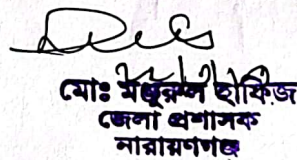 মোঃ মঞ্জুরুল হাফিজ
জেলা প্রশাসক
নারায়ণগঞ্জ